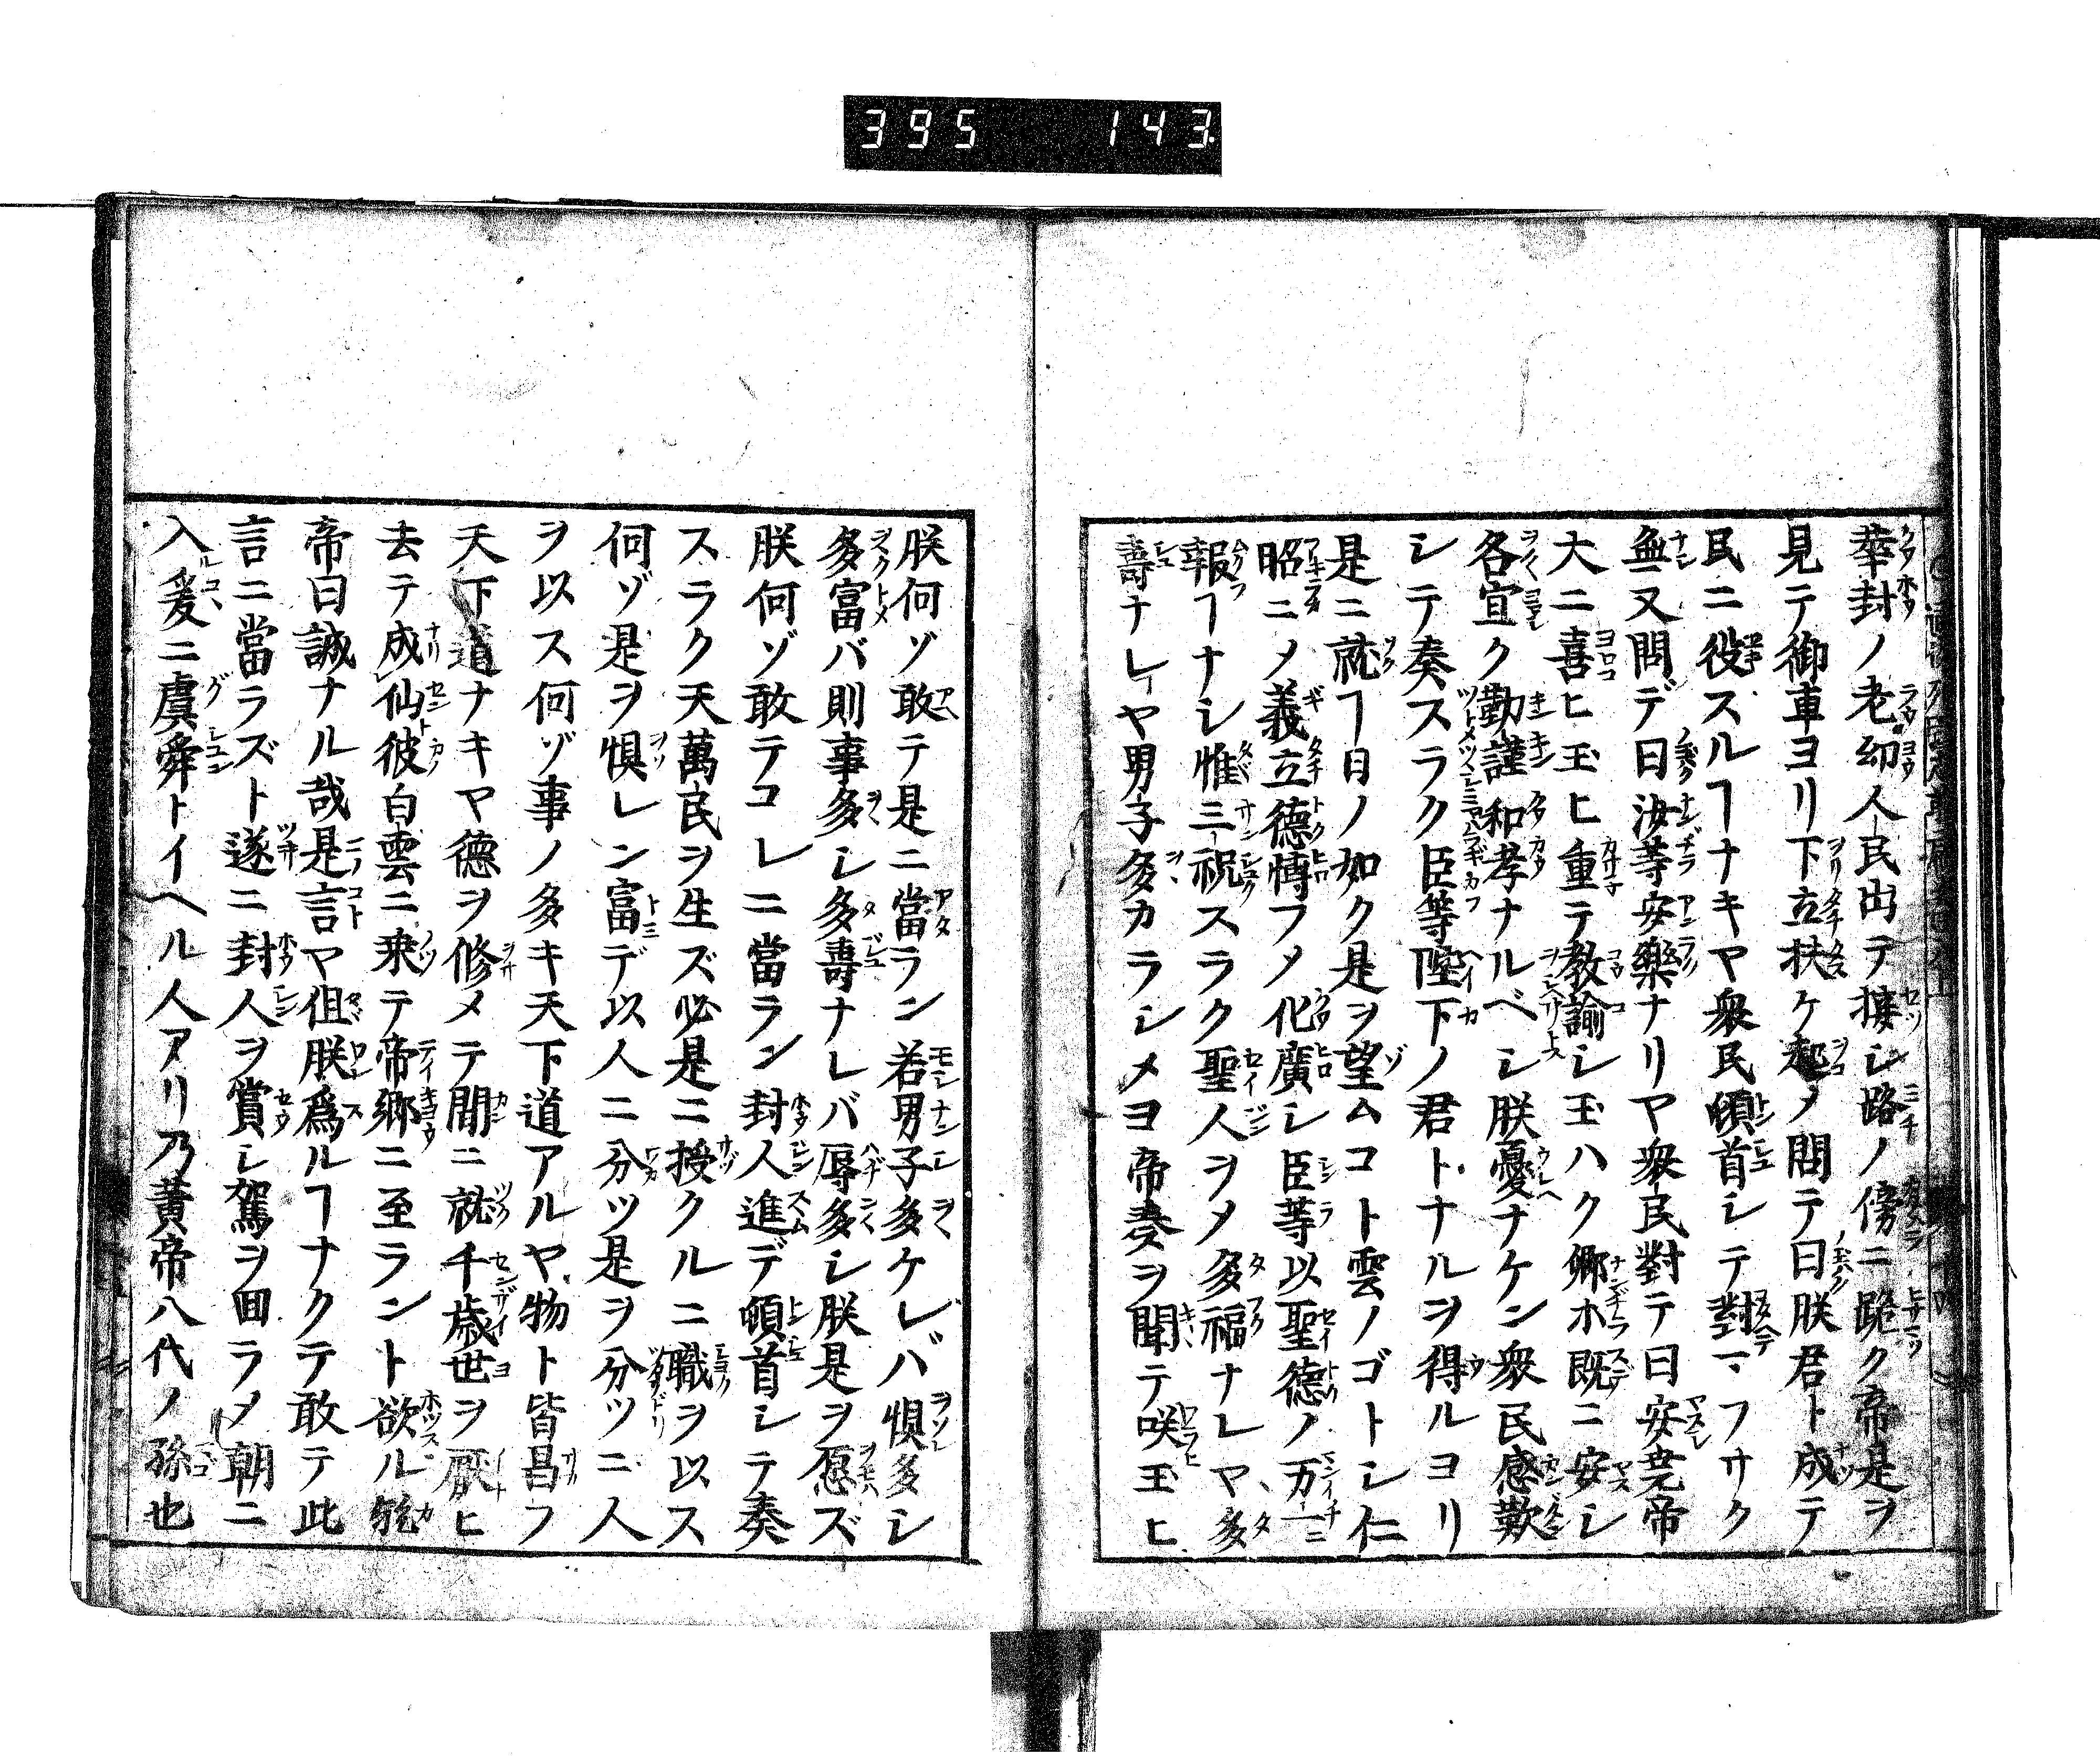 395 143
華封ノ老幼人民出テ接シ路ノ傍ニ跪ク帝是ヲ
見テ御車ヨリ下立扶ケ起メ問テ曰朕君ト成テ
民ニ役スルヿナキヤ衆民頓首シテ對フサク
無又問デ曰汝等安樂ナリヤ衆民對テ曰安尭帝
大ニ喜ヒ玉ヒ重テ教諭シ玉ハク卿ホ既ニ安シ
各宜ク勤謹和孝ナルベシ朕憂ナケン衆民感歎
シテ奏スラク臣等陛下ノ君トナルヲ得ルヨリ
是ニ就ヿ日ノ如ク是ヲ望ムコト雲ノゴトシ仁
昭ニメ義立德愽フメ化廣シ臣等以聖德ノ万一ニ
報ヿナシ惟三祝スラク聖人ヲメ多福ナレヤ多
壽ナレヤ男子多カラシメヨ帝奏ヲ聞テ咲玉ヒ
朕何ゾ敢テ是ニ當ラン若男子多ケレバ惧多シ
多富バ則事多シ多壽ナレバ辱多シ朕是ヲ愿ズ
朕何ゾ敢テコレニ當ラン封人進デ頓首シテ奏
スラク天萬民ヲ生ズ必是ニ授クルニ職ヲ以ス
何ゾ是ヲ惧レン富デ以人ニ分ツ是ヲ分ツニ人
ヲ以ス何ゾ事ノ多キ天下道アルヤ物ト皆昌フ
天下道ナキヤ德ヲ修メテ間ニ就千歳世ヲ厭ヒ
去テ成仙彼白雲ニ乗テ帝郷ニ至ラント欲ル能
帝曰誠ナル哉是言ヤ但朕爲ルヿナクテ敢テ此
言ニ當ラズト遂ニ封人ヲ賞シ駕ヲ回ラメ朝ニ
入爰ニ虞舜トイヘル人アリ乃黄帝八代ノ孫也